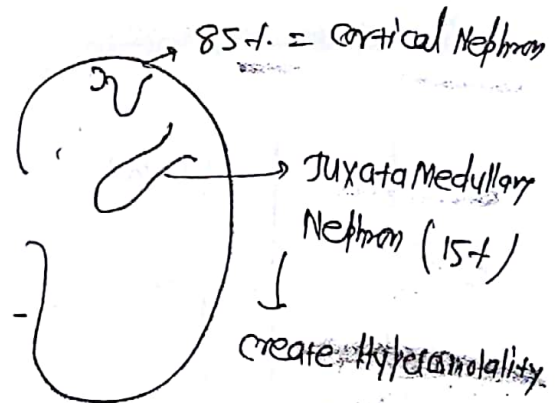 85%. = Cortical Nephron
Juxata Medullary
Nephron (15%)
Create Hyperosmolality.